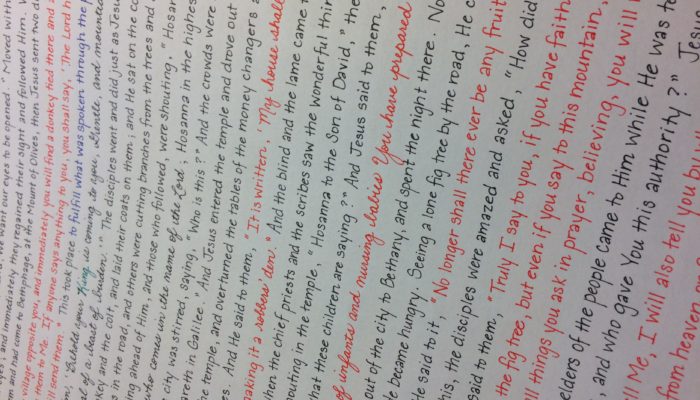 we want our eyes to be opened." Moved with
; and immediately they regained their sight and followed Him.
m and had come to Bethphage, at the Mount of Olives, then Jesus sent two di
village opposite you, and immediately you will find a donkey tied there and a
them to Me. If anyone says anything to you, you shall say, 'The Lord h
ill send them." This took place to fulfill what was spoken through the p
, 'Behold your King is coming to you, Gentle, and mounted
al of a beast of burden.'" The disciples went and did just as Jesus
key and the colt, and laid their coats on them; and He sat on the co
s in the road, and others were cutting branches from the trees and
ing ahead of Him, and those who followed, were shouting, "Hosan
who comes in the name of the Lord; Hosanna in the highes
city was stirred, saying, "Who is this?" And the crowds were
areth in Galilee." And Jesus entered the temple and drove out
e temple, and overturned the tables of the money changers a
es. And He said to them, "It is written, 'My house shall
aking it a robbers' den." And the blind and the lame came t
hen the chief priests and the scribes saw the wonderful thin
outing in the temple, "Hosanna to the Son of David," the
hat these children are saying?" And Jesus said to them,
of infants and nursing babies You have prepared
out of the city to Bethany, and spent the night there. No
e became hungry. Seeing a lone fig tree by the road, He c
e said to it, "No longer shall there ever be any fruit
his, the disciples were amazed and asked, "How did
said to them, "Truly I say to you, if you have faith
the fig tree, but even if you say to this mountain,
ll things you ask in prayer, believing, you will
elders of the people came to Him while He was te
, and who gave You this authority?" Jesu
ll Me, I will also tell you
from heaven